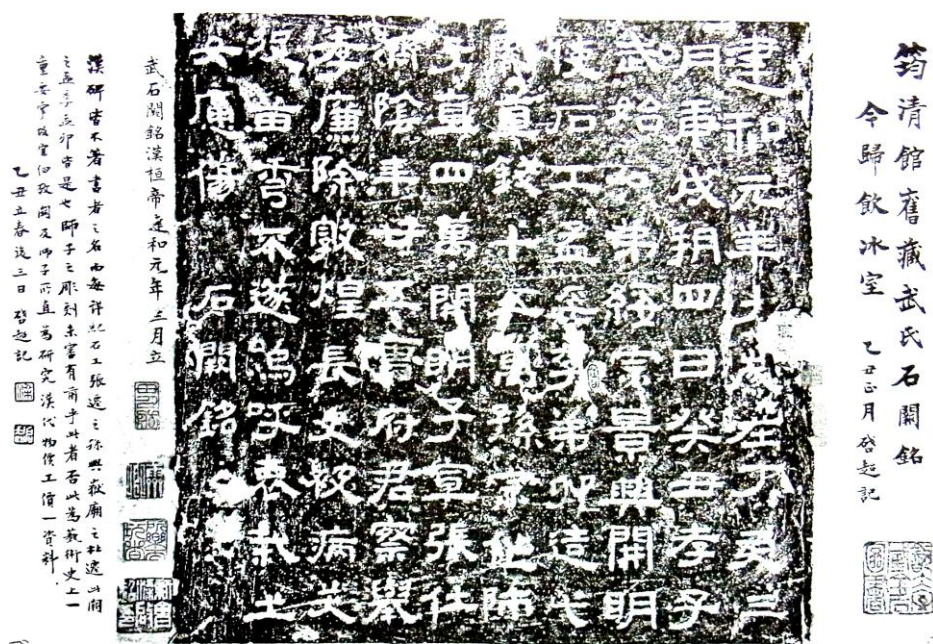 筠清館舊藏武氏石闕銘
今歸飲冰室 乙丑正月啓超記
建和元年大歲在丁亥三
月庚戌朔四日癸丑孝子
武始公弟綏宗景興開明
使石工孟孚李弟卯造此
闕直錢十五萬孫宗作師
子直四萬開明子宣張仕
濟陰年廿五曹府君察舉
孝廉除敦煌長史被病夭
歿苗秀不遂嗚呼哀哉士
女痛傷 石闕銘
武石闕銘漢桓帝建和元年三月立
漢碑皆不著書者之名而每詳紀石工張遷之孫興嶽廟之杜遷此闕
之孟孚孟卯皆是也師子之彫刻未審有前乎此者否此為藝術史上一
重要掌故宜細攷闕及師子所直為研究漢代物價工價一資料
乙丑立春後三日 啓超記